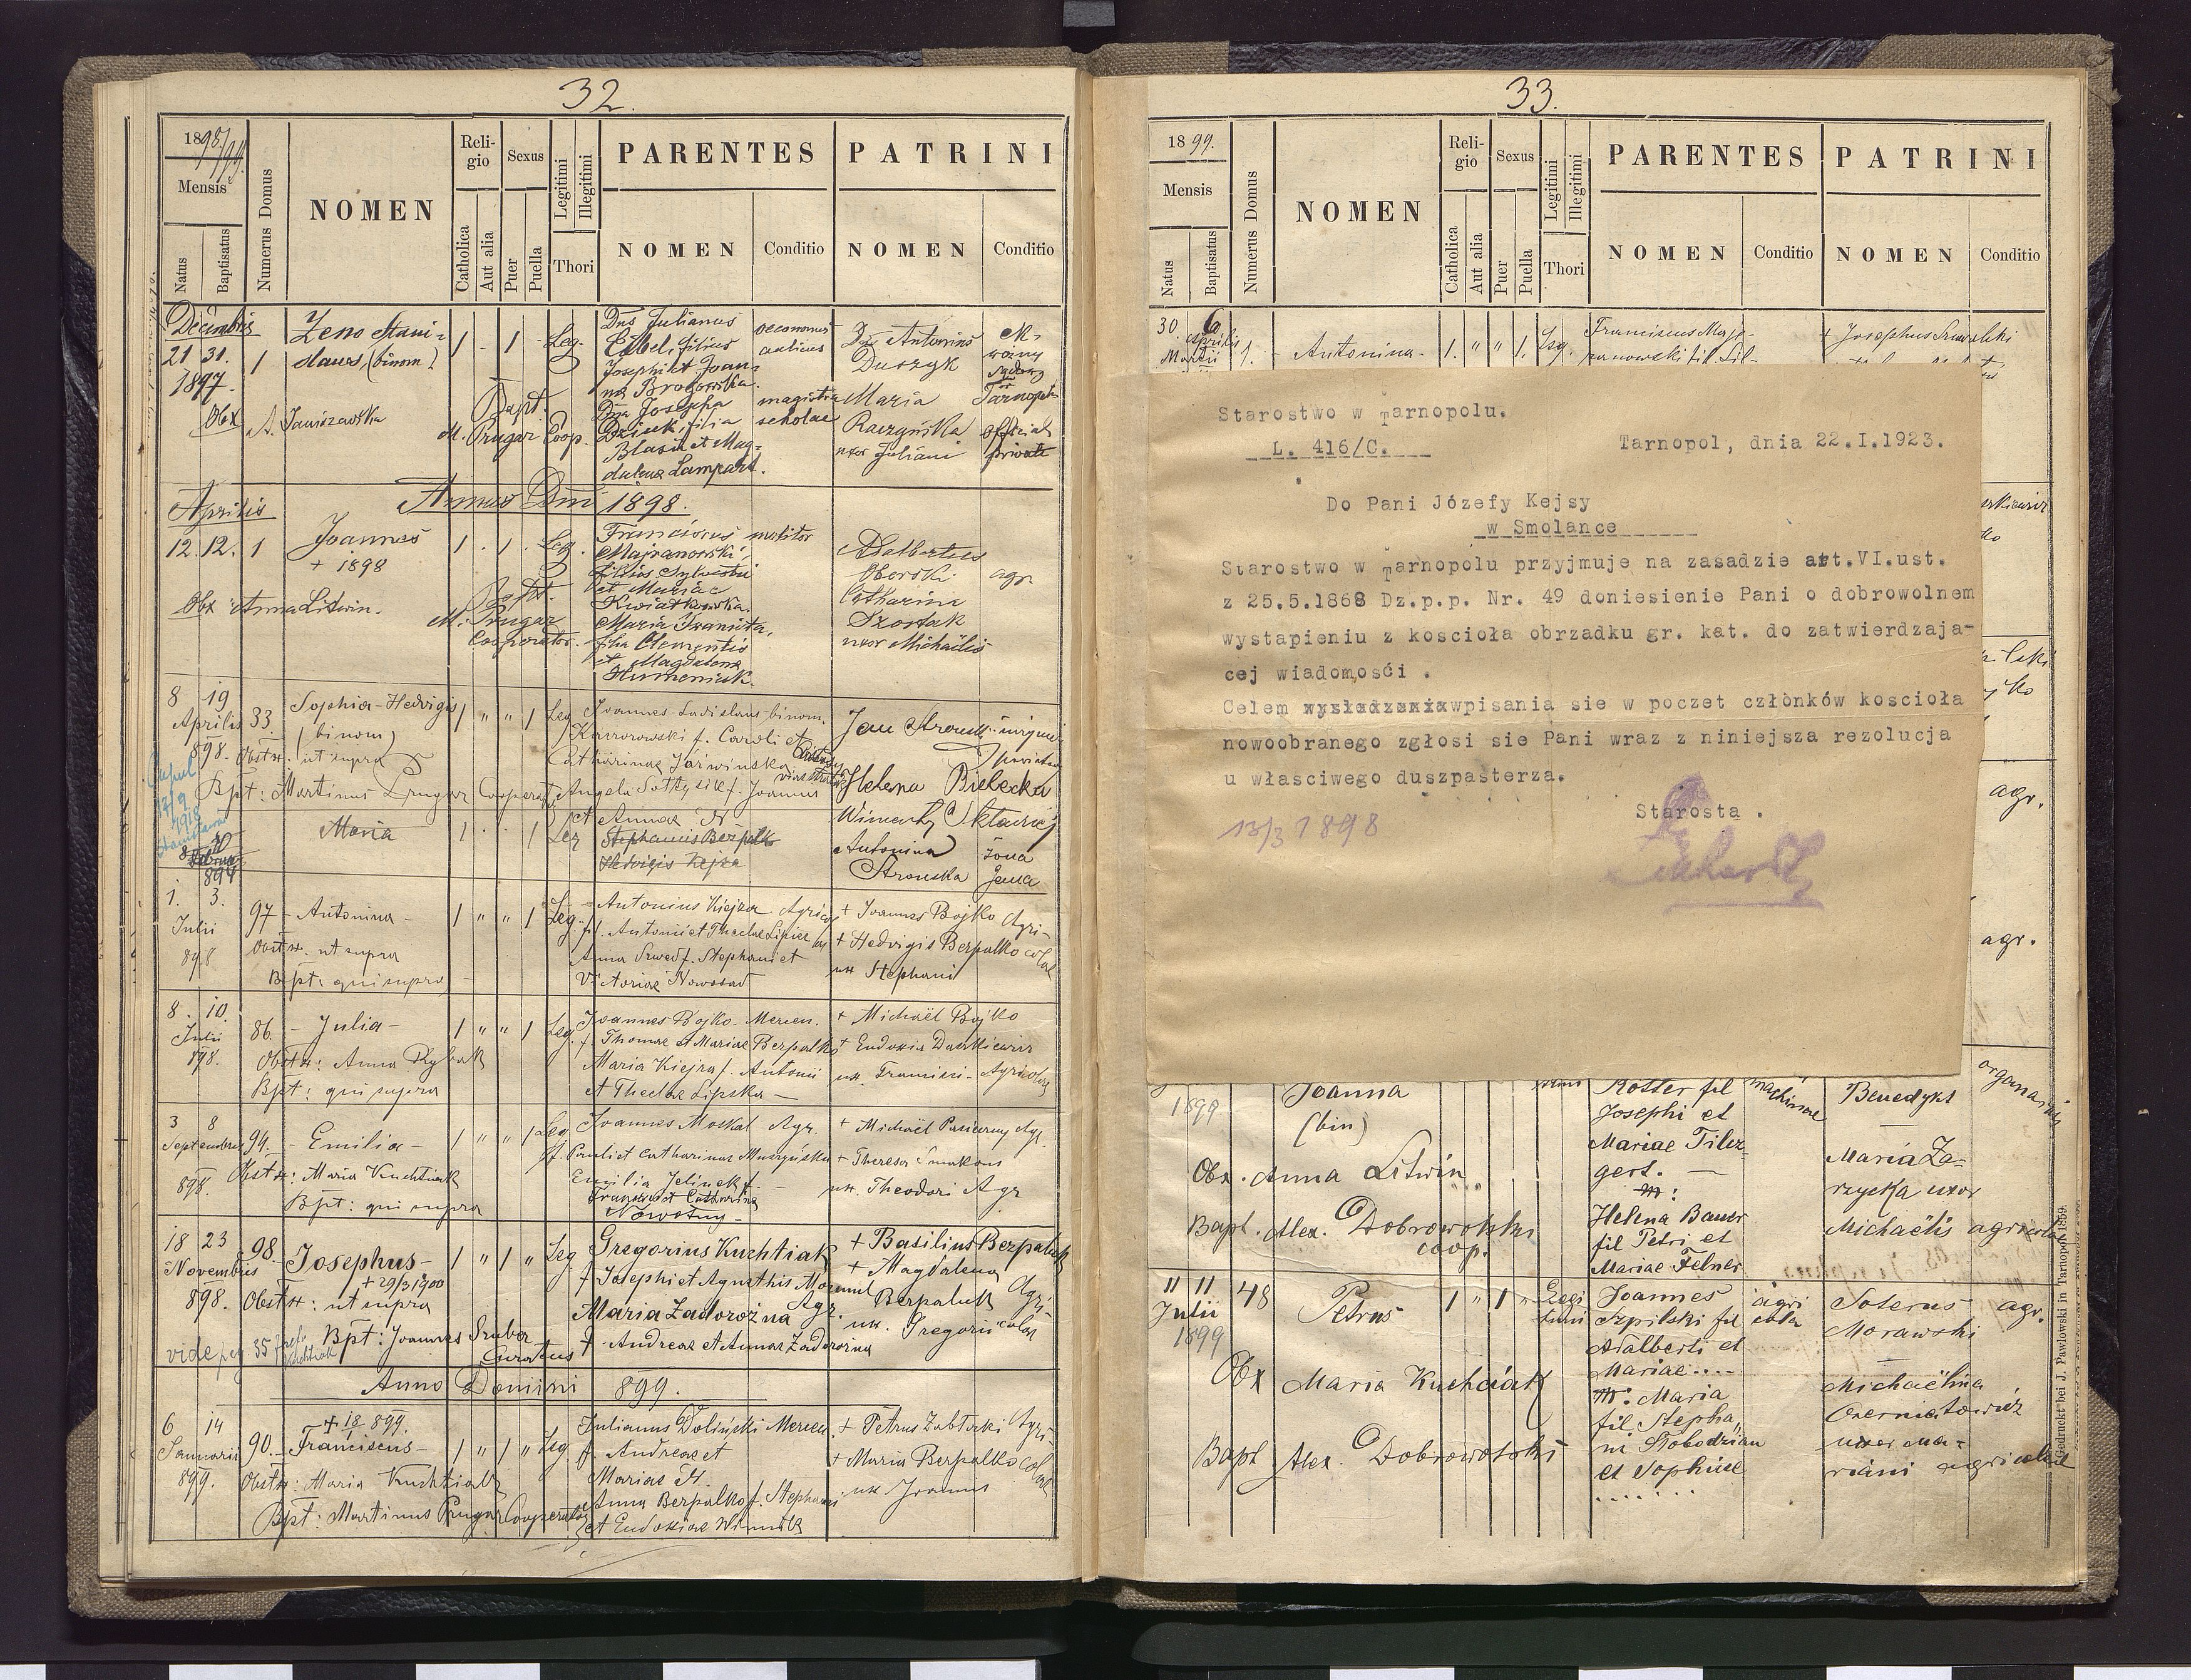 32.
1898/99.
Mensis
Natus
Baptisatus
Numerus Domus
NOMEN
Religio
Catholica
Aut alia
Sexus
Puer
Puella
Legitimi
Illegitimi
Thori
PARENTES
NOMEN
Conditio
PATRINI
NOMEN
Conditio
Decembris
21 31. 1
1897.
Zeno Stani-
slaus, (binom)
1 . 1 . Leg.
Dns Julianus
filius
Josephi et Joan-
oeconomus
Dns Antonius
Duszyk
Obx A. Janiszewska
Bapt.
M. Prugar Coop.
Dna Josepha
filia
Blasii et Mag-
dalenae Lampart.
magistra
scholae
Maria
Raczyńska
uxor Juliani
Tarnopol
Annus Dni 1898.
Aprilis
12. 12. 1
Joannes
+ 1898
1 . 1 . Leg.
Franciscus
Majranowski,
filius Sylvestri
et Mariae
Kwiatkowska.
Maria Iwanita,
filia Clementis
et Magdalena
Humeniuk.
Adalbertus
Oborski agr
Catharina
Szostak
uxor Michaëlis
Obx Anna Litwin.
Bapt.
M. Prugar
Cooperator.
8 19
Aprilis 33
898.
Sophia-Hedvigis
(binom)
1 " " 1 Leg
Joannes-Ladislaus binom.
f. Caroli et
Catharinae Jarwinska
Angela f. Joannis
et Annae N
Obstx. ut supra
Bpt: Martinus Prugar Cooperator
Helena Bielecka
Maria
1 . . 1 Leg
Stephanus Berpalko
Hedvigis Kejza
Antonina
Arouska
1. 3.
Julii 97
898
Antonina -
1 " " 1 Leg.
Antonius Kiejza Agricola
f. Antonii et Theclae Lipiec
Anna Szwed f. Stephani et
Victoriae Nowosad
+ Joannes Bojko Agri-
+ Hedvigis Berpalko colae
ux Stephani
Obstx. ut supra
Bpt: qui supra
8. 10.
Julii 86.
898.
- Julia -
1 " " 1 Leg
Joannes Bojko - Mercen.
f. Thomae et Mariae Berpalko
Maria Kiejza f. Antonii
et Theclae Lipska -
+ Michaël Bojko
+ Eudoxia Daszkiewicz
ux. Francisci - Agricolae
Obstx: Anna Rybak
Bpt: qui supra
3 8
Septembris 94.
898.
- Emilia -
1 " " 1 Leg
Joannes Moskal Agr.
f. Pauli et Catharinae Muszyńska
Emilia Jelinek f.
Francisci et Catharina
Nowotny -
+ Michaël Agr.
+ Theresa
ux. Theodori Agr
Obstx: Maria Kuchtiak
Bpt: qui supra
18 23
Novembris 98.
898.
Josephus -
+ 29/3 1900
1 " 1 " Leg
Gregorius Kuchtiak
f. Josephi et Agnethis
Maria Zadorożna Agr.
f. Andreae et Annae Zadorożna
+ Basilius Berpaluk
+ Magdalena
Berpaluk Agri-
ux. Gregorii colae
Obstx: ut supra
Bpt: Joannes Gruber
Curatus
vide pag 35
Anno Domini 899.
6 14
Januarii 90.
899.
+ 18 899.
Franciscus -
1 " 1 " Leg
Julianus Doliński Mercen.
f. Andreae et
Mariae N.
Anna Berpalko f. Stephani
et Eudoxiae Winnik
+ Petrus Zabłocki Agri-
+ Maria Berpalko colae
ux Joannis
Obstx: Maria Kuchtiak
Bpt: Martinus Prugar Cooperator
33.
1899.
Mensis
Natus
Baptisatus
Numerus Domus
NOMEN
Religio
Catholica
Aut alia
Sexus
Puer
Puella
Legitimi
Illegitimi
Thori
PARENTES
NOMEN
Conditio
PATRINI
NOMEN
Conditio
30 6
Aprilis
Martii 1.
- Antonina -
1. " " 1. Leg.
Franciscus Majra-
nowski fil. Sil-
Starostwo w Tarnopolu.
L. 416/C.
Tarnopol, dnia 22.I.1923.
Do Pani Józefy Kejsy
w Smolance
Starostwo w Tarnopolu przyjmuje na zasadzie art.VI.ust.
z 25.5.1868 Dz.p.p. Nr. 49 doniesienie Pani o dobrowolnem
wystapieniu z koscioła obrzadku gr. kat. do zatwierdzaja-
cej wiadomośći .
Celem wpisania sie w poczet człónków koscioła
nowoobranego zgłosi sie Pani wraz z niniejsza rezolucja
u własciwego duszpasterza.
Starosta .
13/3 1898
agr.
agr.
1899
Joanna
(bin)
Rotter fil
Josephi et
Mariae Tilez-
gert.
M:
Helena Bauer
fil Petri et
Mariae Felner
machinae
Benedykt
Maria Za-
rzycka uxor
Michaëlis agricolae
Obx. Anna Litwin
Bapt. Alex. Dobrowolski
coop.
11 11
Julii 48
1899
Petrus
1 " 1 " Legi
timi
Joannes
Szpilski fil
Adalberti et
Mariae ....
M: Maria
fil Stepha-
ni Słobodzian
et Sophiae
......
agri
cola
Soterus agr.
Morawski
Michaëlina
Czerniatowicz
uxor Ma-
riani agricolae
Obx Maria Kuchciak
Bapt Alex. Dobrowolski
Gedruckt bei J. Pawlowski in Tarnopol 1859.